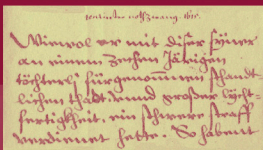 Wiewol er mit diser seiner
an einem zehen Järigen
töchterli fürgenom̄nen schandt
lichen thadt vnnd grosser lycht-
fertigkheit, ein schwere straff
verdienet hette. So habent